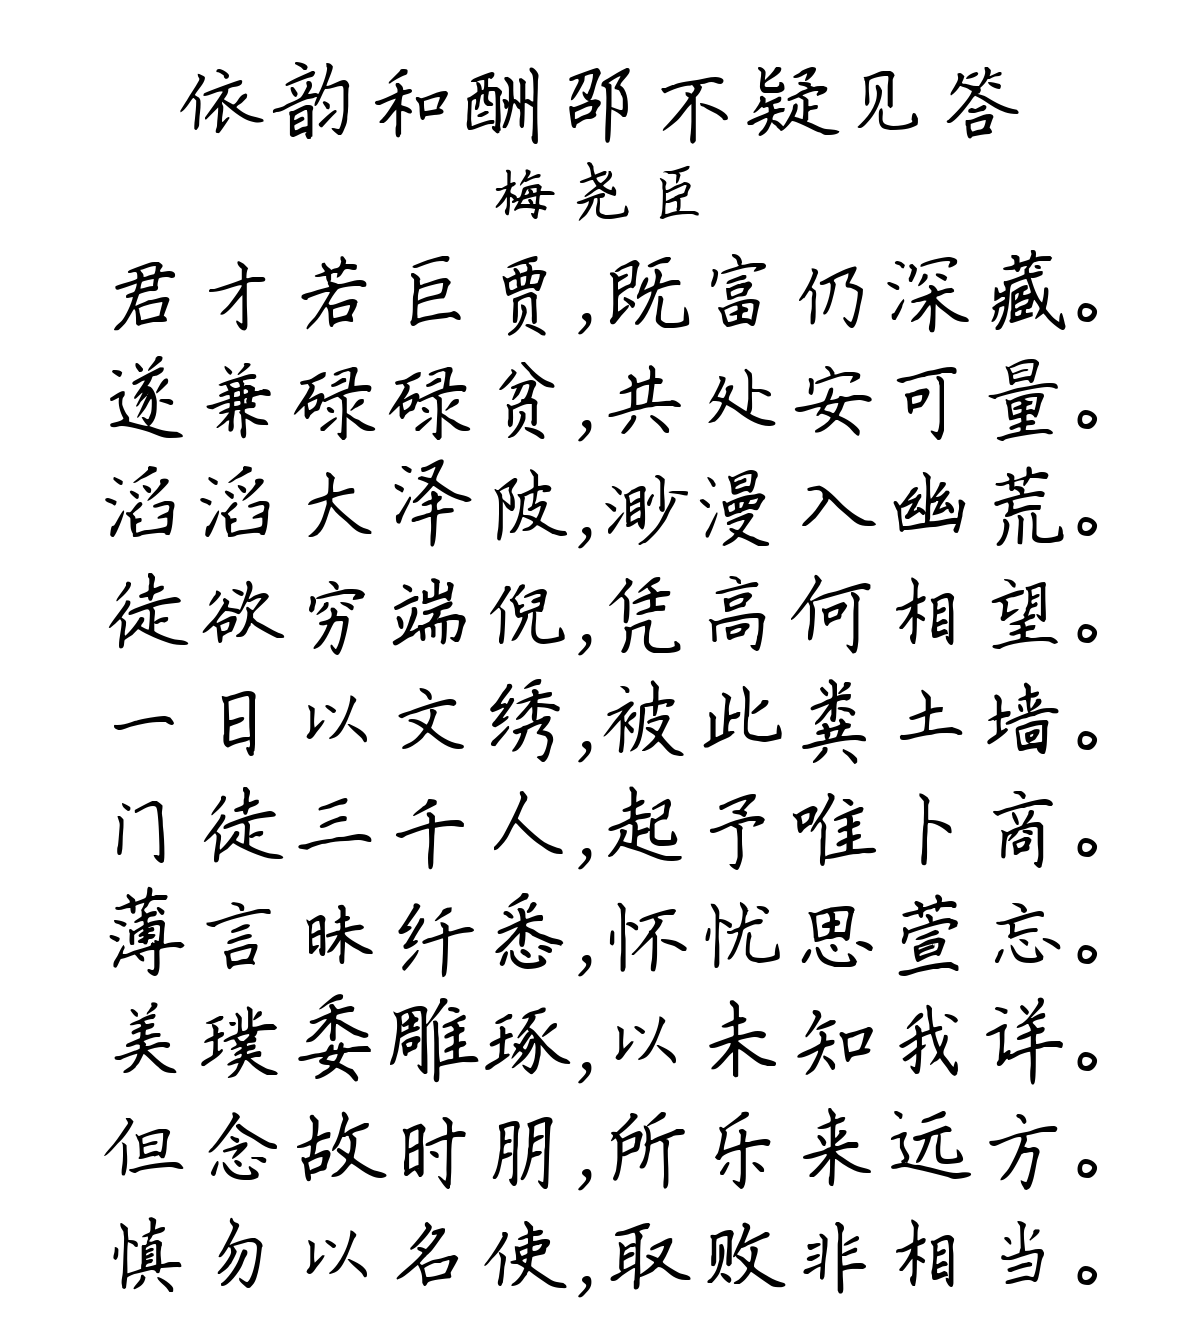 依韵和酬邵不疑见答
梅尧臣
君才若巨贾,既富仍深藏。
遂兼碌碌贫,共处安可量。
滔滔大泽陂,渺漫入幽荒。
徒欲穷端倪,凭高何相望。
一日以文绣,被此粪土墙。
门徒三千人,起予唯卜商。
薄言昧纤悉,怀忧思萱忘。
美璞委雕琢,以未知我详。
但念故时朋,所乐来远方。
慎勿以名使,取败非相当。